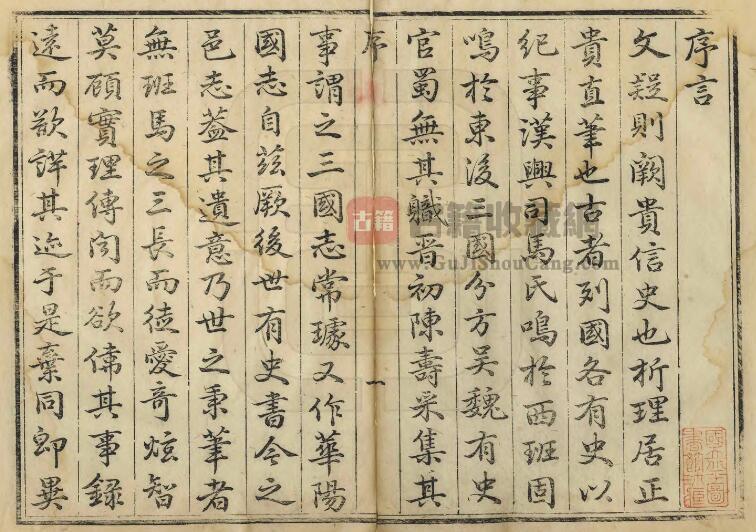 序言
文疑則闕貴信史也析理居正
貴直筆也古者列國各有史以
紀事漢興司馬氏鳴於西班固
鳴於東後三國分方吳魏有史
官蜀無其職晋初陳壽采集其
序
一
事謂之三國志常璩又作華陽
國志自兹厥後世有史書今之
邑志蓋其遺意乃世之秉筆者
無班馬之三長而徒愛奇炫智
莫顧實理傳闻而欲備其事錄
遠而欲詳其迹于是棄同即異
古籍
書籍收藏網
www.GuJiShouCang.com